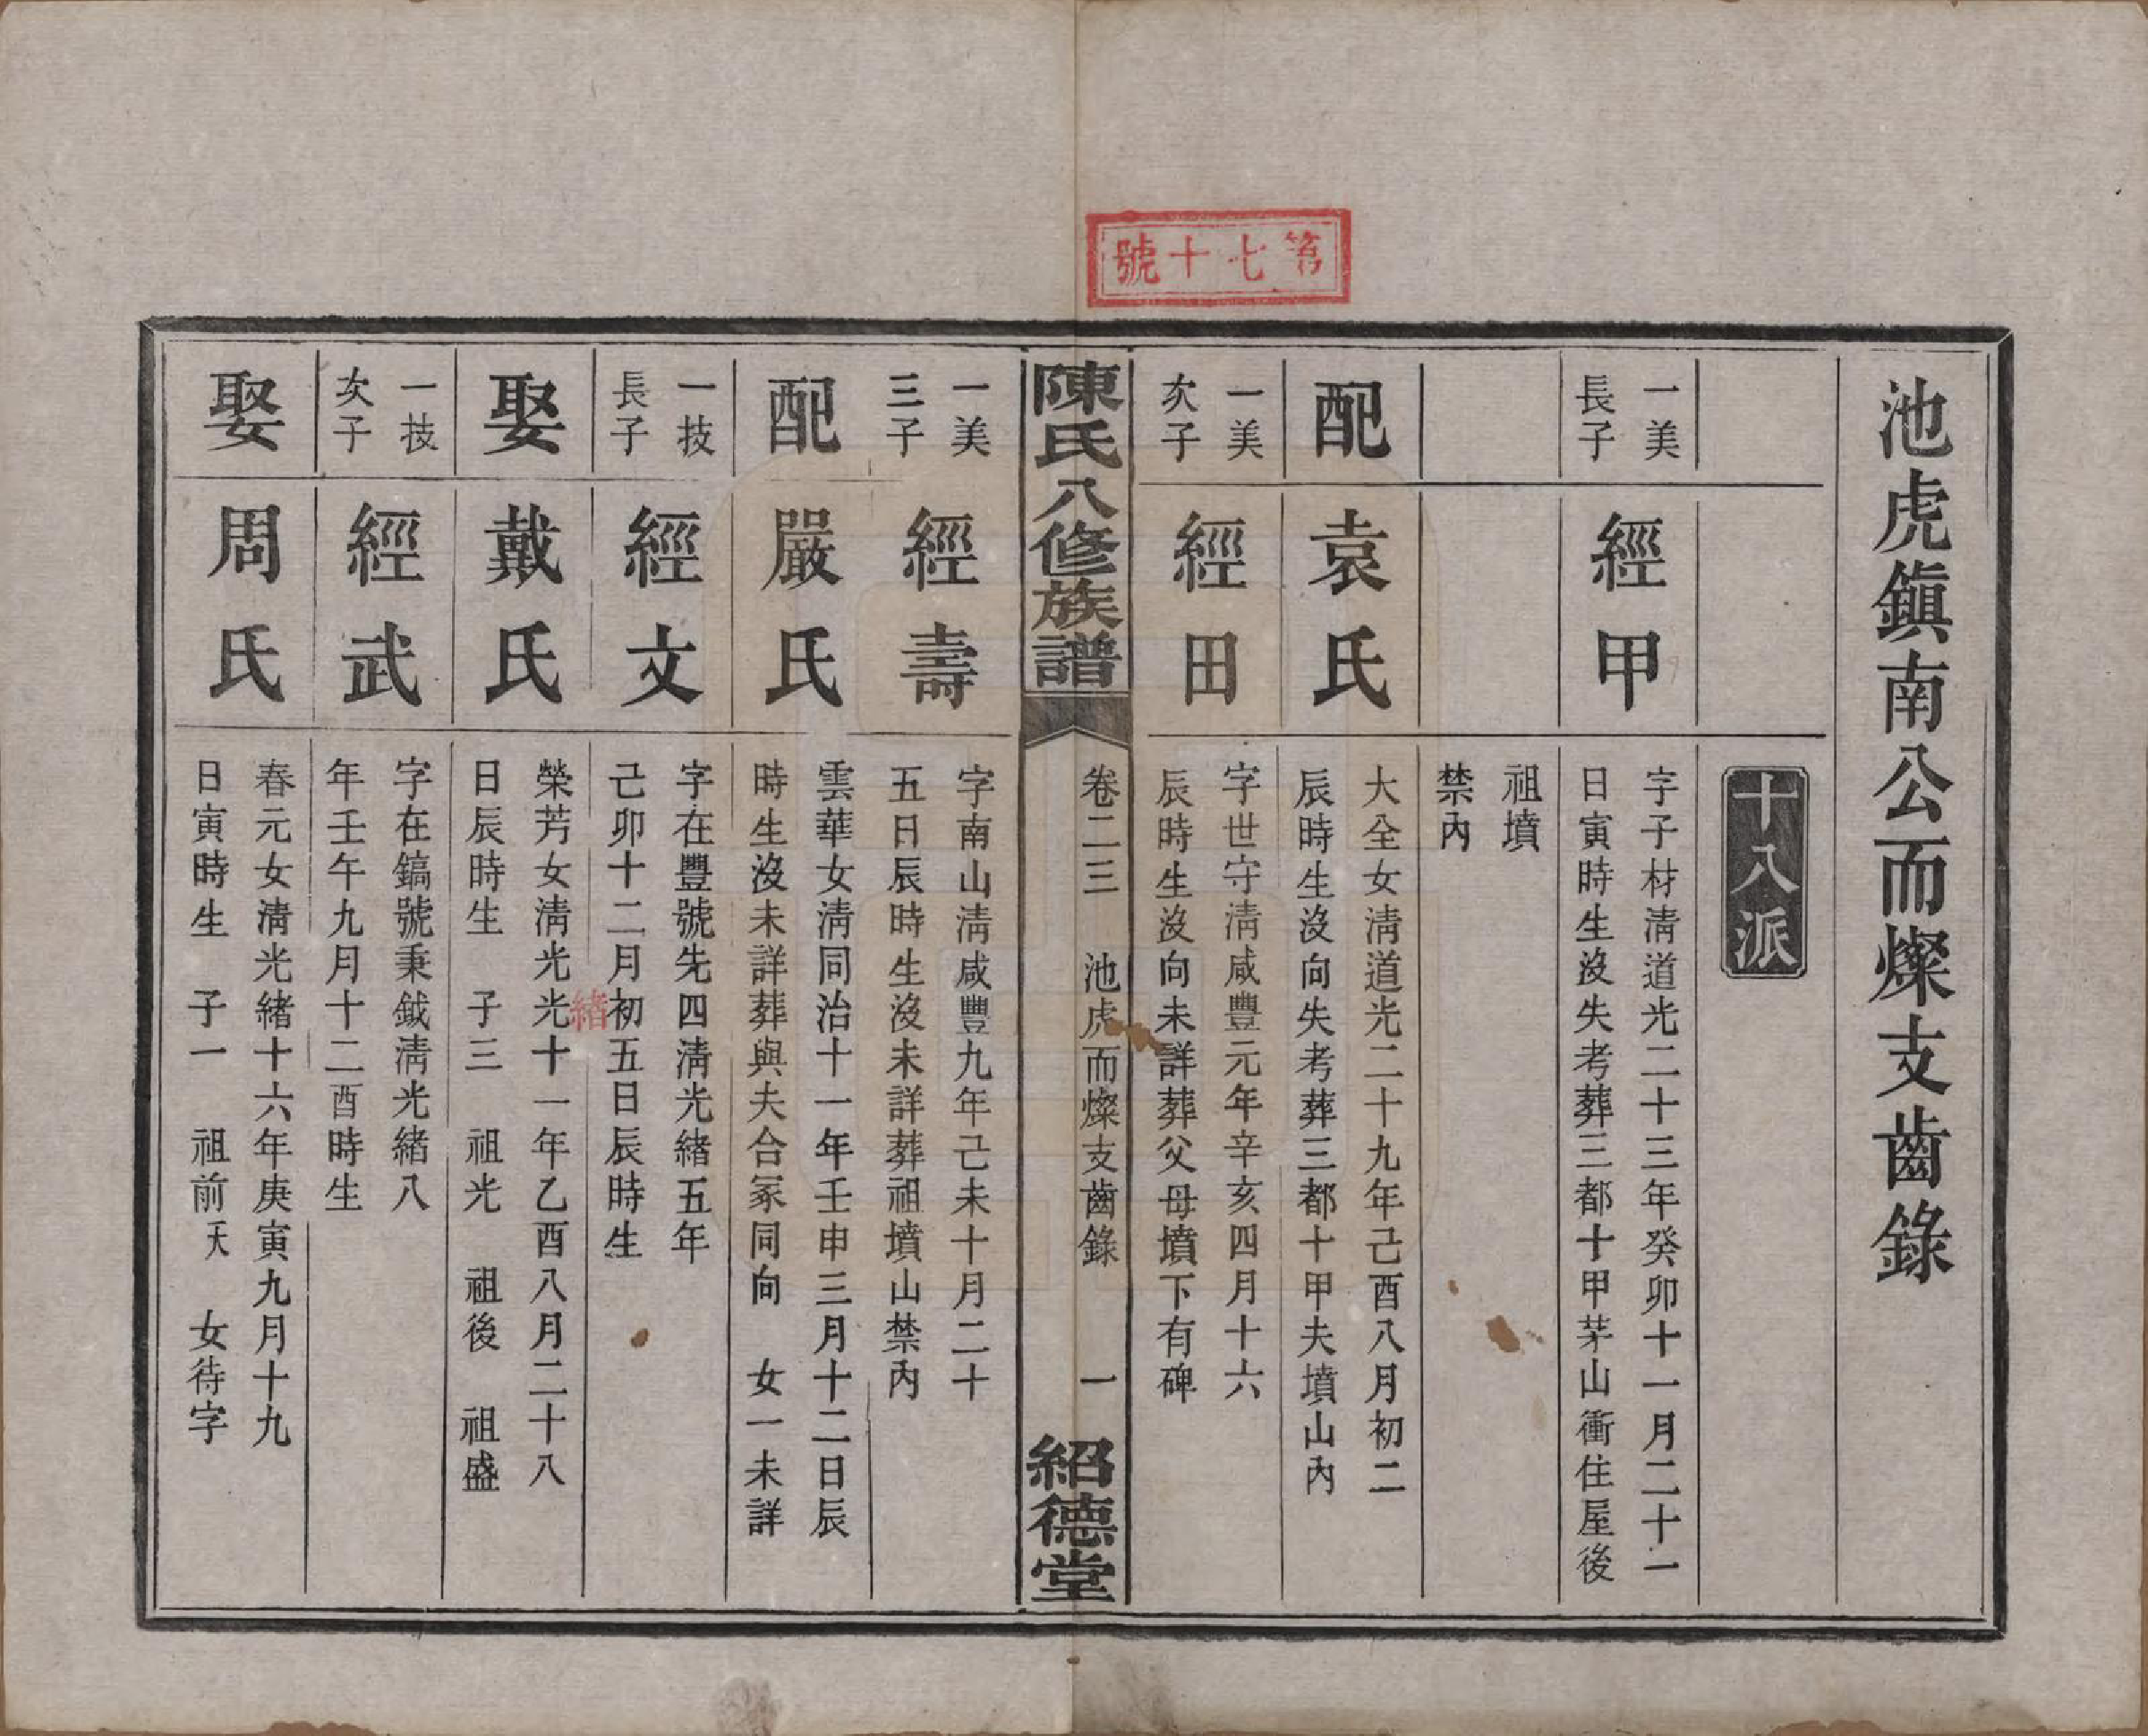 第七十號
池虎鎮南公而燦支齒錄
十八派
一美
長子
經甲
字子材淸道光二十三年癸卯十一月二十一
日寅時生沒失考葬三都十甲茅山衝住屋後
祖墳
禁內
配
袁氏
大全女淸道光二十九年己酉八月初二
辰時生沒向失考葬三都十甲夫墳山內
一美
次子
經田
字世守淸咸豐元年辛亥四月十六
辰時生沒向未詳葬父母墳下有碑
陳氏八修族譜
卷二三 池虎而燦支齒錄 一
紹德堂
一美
三子
經壽
字南山淸咸豐九年己未十月二十
五日辰時生沒未詳葬祖墳山禁內
配
嚴氏
雲華女淸同治十一年壬申三月十二日辰
時生沒未詳葬與夫合冢同向 女一未詳
一技
長子
經文
字在豐號先四淸光緒五年
己卯十二月初五日辰時生
娶
戴氏
榮芳女淸光光十一年乙酉八月二十八
緒
日辰時生 子三 祖光 祖後 祖盛
一技
次子
經武
字在鎬號秉鉞淸光緒八
年壬午九月十二酉時生
娶
周氏
春元女淸光緒十六年庚寅九月十九
日寅時生 子一 祖前夭 女待字